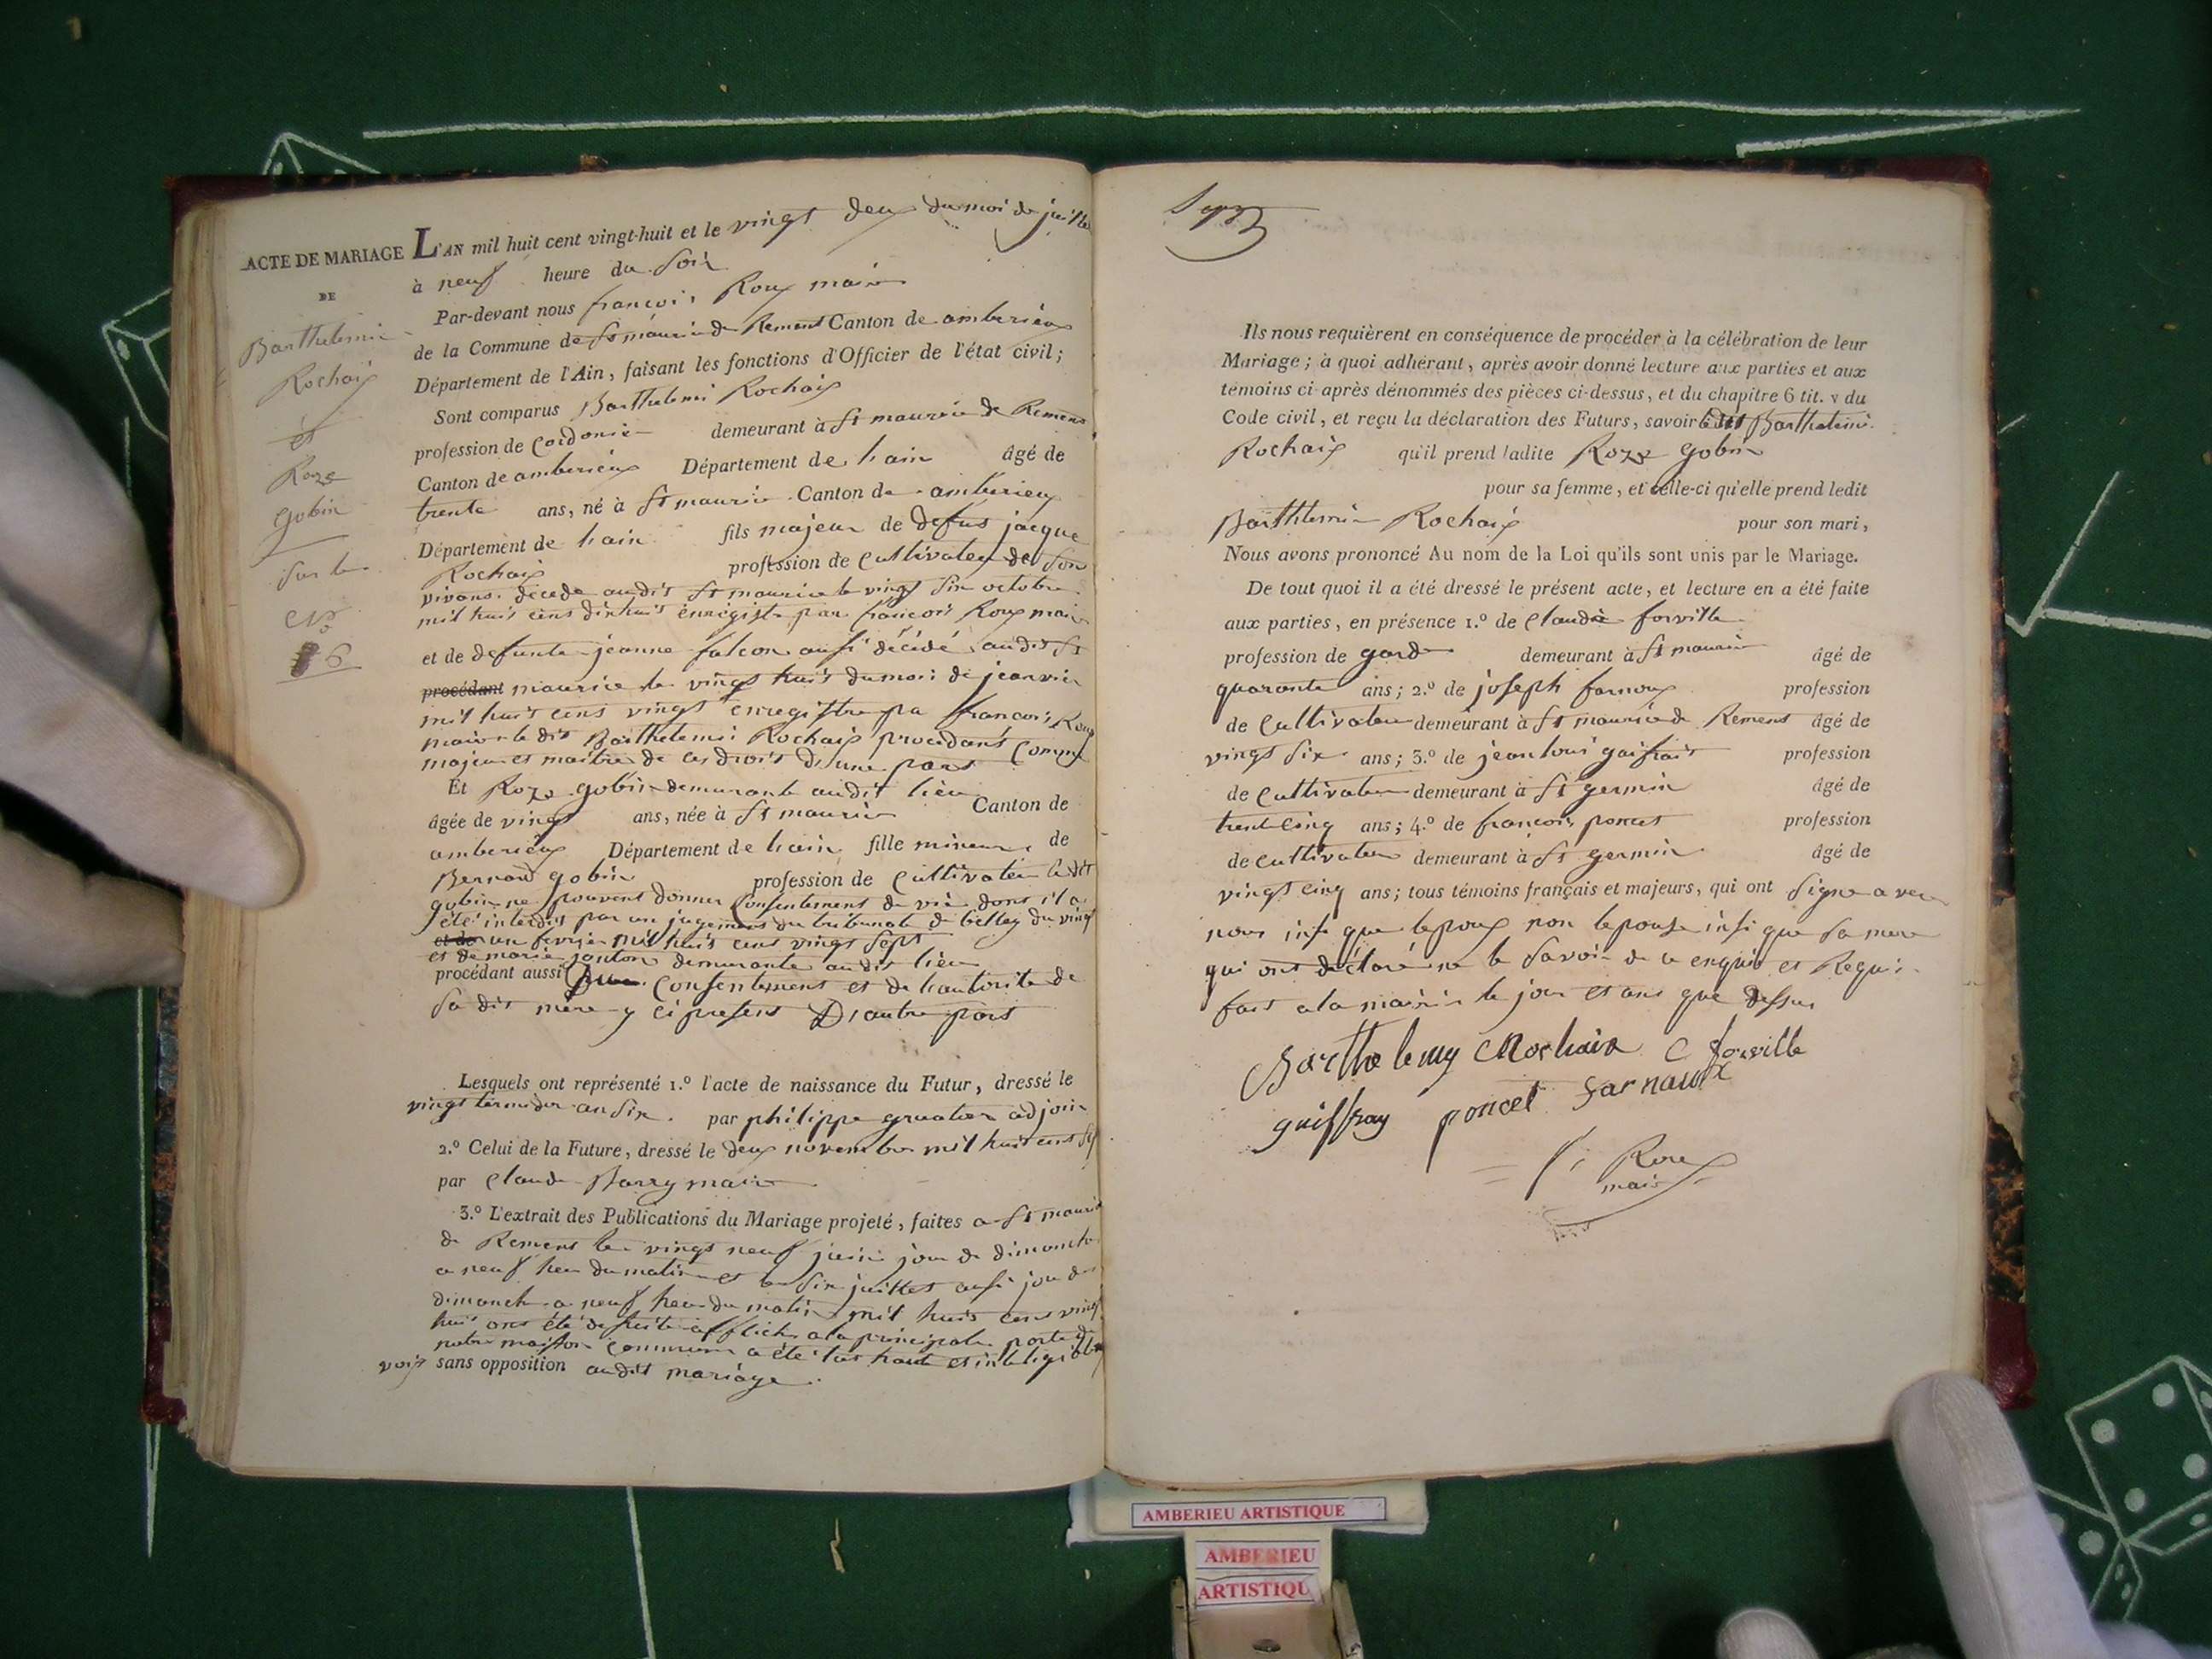 ACTE DE MARIAGE
DE
Barthelemi
Rochaix
et
Roze
Gobin
sur le
No
6
L'AN mil huit cent vingt-huit et le vingt deux du moi de juillet
à neuf heure du soir
Par-devant nous françois Roux maire
de la Commune de st maurice de Remens Canton de amberieux
Département de l'Ain, faisant les fonctions d'Officier de l'état civil;
Sont comparus Barthelemi Rochaix
profession de Cordonie demeurant à st maurice de Remens
Canton de amberieux Département de lain âgé de
trente ans, né à st maurice Canton de amberieux
Département de lain fils majeur de defus jacque
Rochaix profession de Cultivateur de son
vivans décédé audit st maurice le vingt six octobre
mil huit cens dix huit enregistre par françois Roux maire
et de defunte jeanne falcon ausi décédé audit st
procédant maurice le vingt huit du moi de jeanvier
mil huit cens vingt enregistre par francois Roux
maire le dit Barthelemi Rochaix procedant comme
majeur et maitre de ces droit d'une part
Et Roze gobin demeurante audit lieu
âgée de vingt ans, née à st maurice Canton de
amberieux Département de lain fille mineure de
Bernard gobin profession de Cultivateur le dit
gobin ne pouvent donner Consentement de vie dont il a
été interdit par un jugement du tribunale de belley du vingt
et de un fevrier mil huit cens vingt sept
et de marie janton demeurante audit lieu
procédant aussi Consentement et de lautorité de
sa dit mère y ci present D'autre part
Lesquels ont représenté 1.º l'acte de naissance du Futur, dressé le
vingt termidor an six. par philippe gruatier adjoin
2.º Celui de la Future, dressé le deux novembre mil huit cent
par Claude Barry maire
3.º L'extrait des Publications du Mariage projeté, faites a st maurice
de Remens le vingt neuf juin jour de dimanche
a neuf heu du matin et le six juillet ausi jour de
dimanche a neuf heu du matin mil huit cens vingt
huit ont été de suite affiché a la principale porte de
notre maison commune a été lut haute et inteligible
voix sans opposition audit mariage.
Ils nous requièrent en conséquence de procéder à la célébration de leur
Mariage; à quoi adhérant, après avoir donné lecture aux parties et aux
témoins ci-après dénommés des pièces ci-dessus, et du chapitre 6 tit. v du
Code civil, et reçu la déclaration des Futurs, savoir ledit Barthelemi
Rochaix qu'il prend ladite Roze gobin
pour sa femme, et celle-ci qu'elle prend ledit
Barthlemi Rochaix pour son mari,
Nous avons prononcé Au nom de la Loi qu'ils sont unis par le Mariage.
De tout quoi il a été dressé le présent acte, et lecture en a été faite
aux parties, en présence 1.º de Claude forville
profession de garde demeurant à st maurice âgé de
quarante ans; 2.º de joseph farnoux profession
de Cultivateur demeurant à st maurice de Remens âgé de
vingt six ans; 3.º de jean loui gaifrait profession
de Cultivateur demeurant à st germin âgé de
trente cinq ans; 4.º de francois poncet profession
de cultivateur demeurant à st germin âgé de
vingt cinq ans; tous témoins français et majeurs, qui ont signe avec
nous insi que lepoux non lepouse insi que sa mere
qui ont déclaré ne le savoir de ce enquis et Requi.
fait a la mairie le jour et ans que dessus
Barthelemy Rochaix C forville
guiffray poncet farnaux
f. Roux
maire
AMBERIEU ARTISTIQUE
AMBERIEU
ARTISTIQU